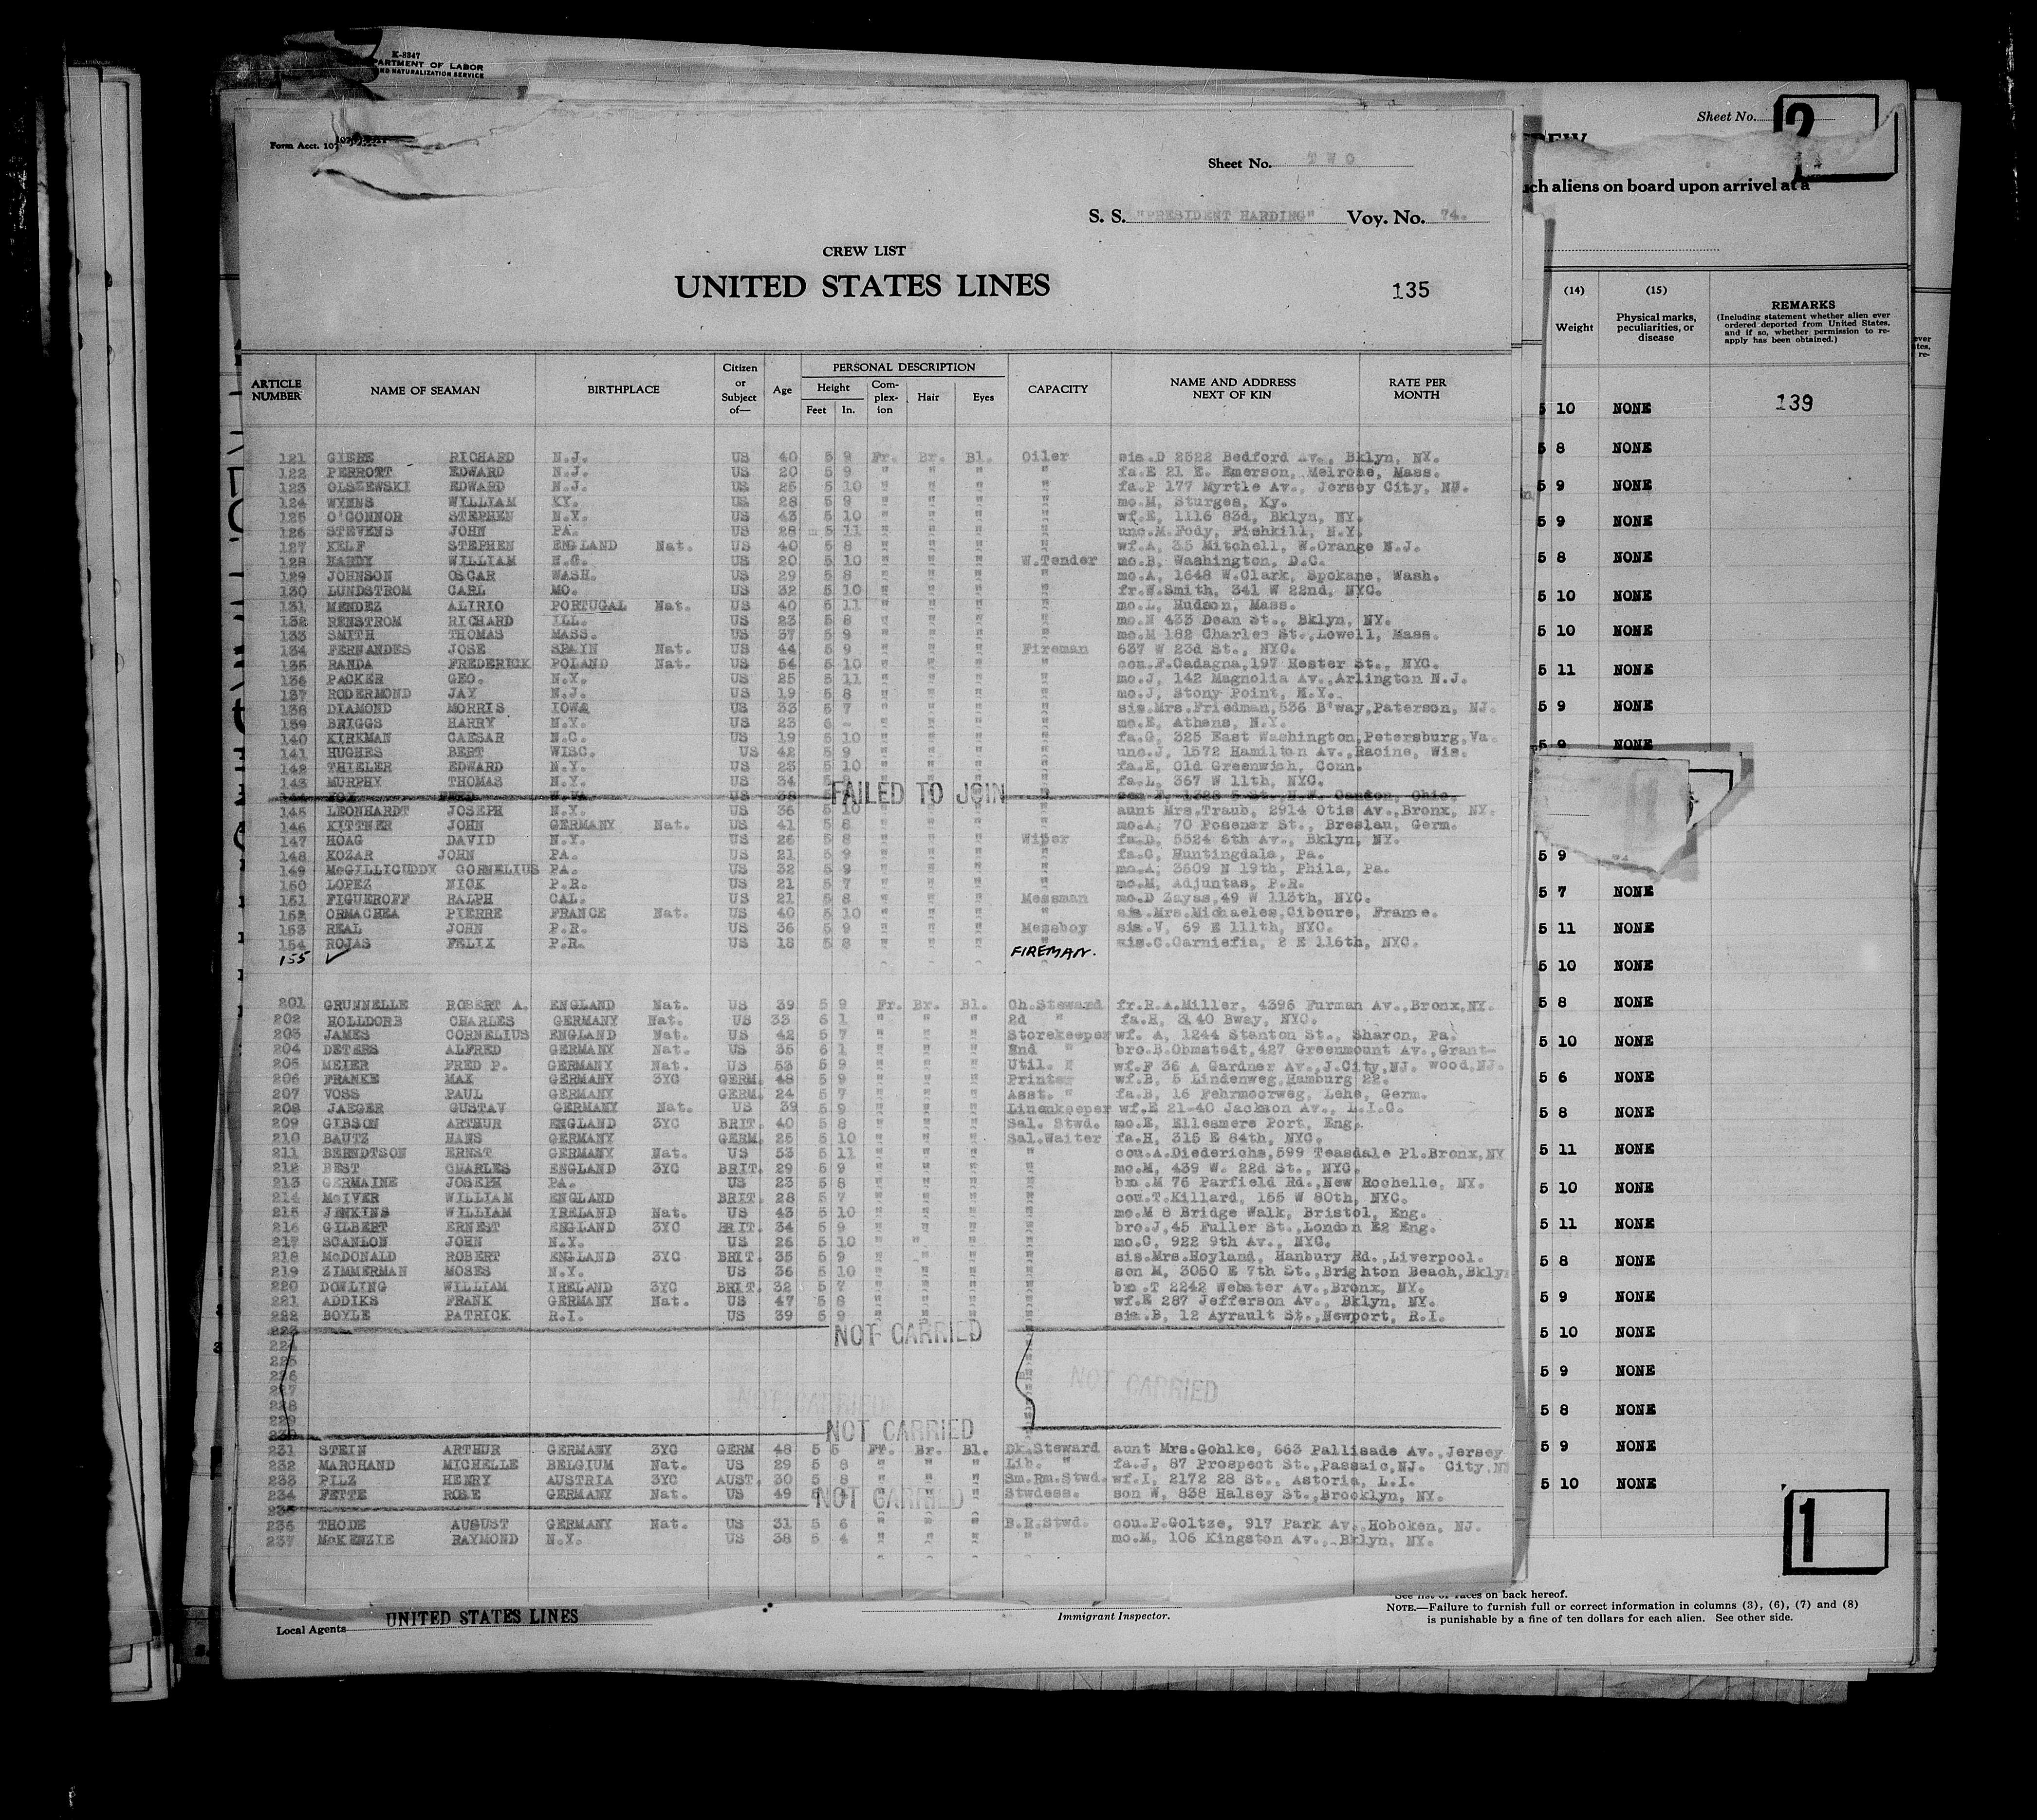 K-8347
PARTMENT OF LABOR
AND NATURALIZATION SERVICE
Form Acct. 107
Sheet No. TWO
S. S. "PRESIDENT HARDING" Voy. No. 74.
CREW LIST
UNITED STATES LINES
135
ARTICLE NUMBER NAME OF SEAMAN BIRTHPLACE Citizen or Subject of— Age PERSONAL DESCRIPTION Height Feet In. Complexion Hair Eyes CAPACITY NAME AND ADDRESS NEXT OF KIN RATE PER MONTH
121 GIERE RICHARD N.J. US 40 5 9 Fr. Br. Bl. Oiler sis.D 2522 Bedford Av., Bklyn, NY.
122 PERROTT EDWARD N.J. US 20 5 9 " " " " fa.E 21 E. Emerson, Melrose, Mass.
123 OLSZEWSKI EDWARD N.J. US 25 5 10 " " " " fa.P 177 Myrtle Av., Jersey City, NJ.
124 WYNNS WILLIAM KY. US 28 5 9 " " " " mo.M, Sturges, Ky.
125 O'CONNOR STEPHEN N.Y. US 43 5 10 " " " " wf.E, 1116 83d, Bklyn, NY.
126 STEVENS JOHN PA. US 28 5 11 " " " " unc.M.Fody, Fishkill, N.Y.
127 KELF STEPHEN ENGLAND Nat. US 40 5 8 " " " " wf.A, 35 Mitchell, W.Orange N.J.
128 HARDY WILLIAM N.C. US 20 5 10 " " " W.Tender mo.B, Washington, D.C.
129 JOHNSON OSCAR WASH. US 29 5 8 " " " " mo.A, 1648 W.Clark, Spokane, Wash.
130 LUNDSTROM CARL MO. US 32 5 10 " " " " fr.W.Smith, 341 W 22nd, NYC.
131 MENDEZ ALIRIO PORTUGAL Nat. US 40 5 11 " " " " mo.L, Hudson, Mass.
132 RENSTROM RICHARD ILL. US 23 5 8 " " " " mo.N 433 Dean St., Bklyn, NY.
133 SMITH THOMAS MASS. US 37 5 9 " " " " mo.M 182 Charles St.,Lowell, Mass.
134 FERNANDES JOSE SPAIN Nat. US 44 5 9 " " " Fireman 637 W 23d St., NYC.
135 RANDA FREDERICK POLAND Nat. US 54 5 10 " " " " cou.F.Cadagna,197 Hester St., NYC.
136 PACKER GEO. N.Y. US 25 5 11 " " " " mo.J, 142 Magnolia Av.,Arlington N.J.
137 RODERMOND JAY N.J. US 19 5 8 " " " " mo.J, Stony Point, N.Y.
138 DIAMOND MORRIS IOWA US 33 5 7 " " " " sis.Mrs.Friedman,536 B'way,Paterson, NJ.
139 BRIGGS HARRY N.Y. US 23 6 - " " " " mo.E, Athens, N.Y.
140 KIRKMAN CAESAR N.C. US 19 5 10 " " " " fa.G, 325 East Washington,Petersburg,Va.
141 HUGHES BERT WISC. US 42 5 9 " " " " unc.J, 1572 Hamilton Av.,Racine, Wis.
142 THIELER EDWARD N.Y. US 23 5 10 " " " " fa.E, Old Greenwich, Conn.
143 MURPHY THOMAS N.Y. US 34 5 " " " " fa.L, 367 W 11th, NYC.
144 US 38 FAILED TO JOIN Ohio.
145 LEONHARDT JOSEPH N.Y. US 36 5 10 " " " " aunt Mrs.Traub, 2914 Otis Av.,Bronx, NY.
146 KITTNER JOHN GERMANY Nat. US 41 5 8 " " " " mo.A, 70 Posener St., Breslau, Germ.
147 HOAG DAVID N.Y. US 26 5 8 " " " Wiper fa.D, 5524 6th Av., Bklyn, NY.
148 KOZAR JOHN PA. US 21 5 9 " " " " fa.C, Huntingdale, Pa.
149 McGILLICUDDY CORNELIUS PA. US 32 5 9 " " " " mo.A, 3609 N 19th, Phila, Pa.
150 LOPEZ NICK P.R. US 21 5 7 " " " " mo.M, Adjuntas, P.R.
151 FIGUEROFF RALPH CAL. US 21 5 8 " " " Messman mo.D Zayas,49 W 113th, NYC.
152 ORMACHEA PIERRE FRANCE Nat. US 40 5 10 " " " " sis.Mrs.Michaeles,Ciboure, France.
153 REAL JOHN P.R. US 36 5 9 " " " Messboy sis.V, 69 E 111th, NYC.
154 ROJAS FELIX P.R. US 18 5 8 " " " " sis.C.Carniefia, 2 E 116th, NYC.
155 ✓ FIREMAN.
201 GRUNNELLE ROBERT A. ENGLAND Nat. US 39 5 9 Fr. Br. Bl. Ch.Steward fr.R.A.Miller, 4396 Furman Av.,Bronx,NY.
202 HOLLDORB CHARLES GERMANY Nat. US 33 6 1 " " " 2d " fa.H, 3140 Bway, NYC.
203 JAMES CORNELIUS ENGLAND Nat. US 42 5 7 " " " Storekeeper wf. A, 1244 Stanton St., Sharon, Pa.
204 DETERS ALFRED GERMANY Nat. US 35 6 1 " " " 2nd " bro.B.Obmstedt,427 Greenmount Av.,Grant-
205 MEIER FRED P. GERMANY Nat. US 53 5 9 " " " Util. " wf.F 36 A Gardner Av.,J.City,NJ. wood,NJ.
206 FRANKE MAX GERMANY 3YC GERM. 48 5 9 " " " Printer wf.B, 5 Lindenweg,Hamburg 22.
207 VOSS PAUL GERMANY GERM. 24 5 7 " " " Asst. " fa.B, 16 Fehrmoorweg, Lehe, Germ.
208 JAEGER GUSTAV GERMANY Nat. US 39 5 9 " " " Linenkeeper wf.E 21-40 Jackson Av., L.I.C.
209 GIBSON ARTHUR ENGLAND 3YC BRIT. 40 5 8 " " " Sal. Stwd. mo.E, Ellesmere Port, Eng.
210 BAUTZ HANS GERMANY GERM. 25 5 10 " " " Sal.Waiter fa.H, 315 E 84th, NYC.
211 BERNDTSON ERNST GERMANY Nat. US 53 5 11 " " " " cou.A.Diederichs,599 Teasdale Pl.Bronx,NY
212 BEST CHARLES ENGLAND 3YC BRIT. 29 5 9 " " " " mo.M, 439 W. 22d St., NYC.
213 GERMAINE JOSEPH PA. US 23 5 8 " " " " bro.M 76 Parfield Rd.,New Rochelle, NY.
214 McIVER WILLIAM ENGLAND BRIT. 28 5 7 " " " " cou.T.Killard, 155 W 80th, NYC.
215 JENKINS WILLIAM IRELAND Nat. US 43 5 10 " " " " mo.M 8 Bridge Walk, Bristol, Eng.
216 GILBERT ERNEST ENGLAND 3YC BRIT. 34 5 9 " " " " bro.J,45 Fuller St.,London E2 Eng.
217 SCANLON JOHN N.Y. US 26 5 10 " " " " mo.C, 922 9th Av., NYC.
218 McDONALD ROBERT ENGLAND 3YC BRIT. 35 5 9 " " " " sis.Mrs.Hoyland, Hanbury Rd.,Liverpool.
219 ZIMMERMAN MOSES N.Y. US 36 5 10 " " " " son M, 3050 E 7th St.,Brighton Beach,Bklyn
220 DOWLING WILLIAM IRELAND 3YC BRIT. 32 5 7 " " " " bro.T 2242 Webster Av.,Bronx, NY.
221 ADDIKS FRANK GERMANY Nat. US 47 5 8 " " " " wf.E 287 Jefferson Av., Bklyn, NY.
222 BOYLE PATRICK R.I. US 39 5 9 " " " " sis.B, 12 Ayrault St.,Newport, R.I.
223 NOT CARRIED
224
225
226 NOT CARRIED
227 NOT CARRIED
228
229
230 NOT CARRIED
231 STEIN ARTHUR GERMANY 3YC GERM 48 5 5 Fr. Br. Bl. Dk.Steward aunt Mrs.Gohlke, 663 Pallisade Av.,Jersey
232 MARCHAND MICHELLE BELGIUM Nat. US 29 5 8 " " " Lib. " fa.J, 87 Prospect St.,Passaic,NJ. City,NJ
233 PILZ HENRY AUSTRIA 3YC AUST. 30 5 8 " " " Sm.Rm.Stwd. wf.I, 2172 28 St., Astoria, L.I.
234 FETTE ROSE GERMANY Nat. US 49 5 4 " " " Stwdess. son W, 838 Halsey St.,Brooklyn, NY.
235 NOT CARRIED
236 THODE AUGUST GERMANY Nat. US 31 5 6 " " " B.R.Stwd. cou.P.Goltze, 917 Park Av.,Hoboken, NJ.
237 McKENZIE RAYMOND N.Y. US 38 5 4 " " " " mo.M, 106 Kingston Av., Bklyn, NY.
UNITED STATES LINES
Local Agents
Immigrant Inspector.
Sheet No. 2
REW
such aliens on board upon arrival at a
(14) Weight (15) Physical marks, peculiarities, or disease REMARKS (Including statement whether alien ever ordered deported from United States, and if so, whether permission to reapply has been obtained.)
139
5 10 NONE
5 8 NONE
5 9 NONE
5 9 NONE
5 8 NONE
5 10 NONE
5 10 NONE
5 11 NONE
5 9 NONE
5 9 NONE
5 9
5 7 NONE
5 11 NONE
5 10 NONE
5 8 NONE
5 10 NONE
5 6 NONE
5 8 NONE
5 11 NONE
5 10 NONE
5 11 NONE
5 8 NONE
5 9 NONE
5 10 NONE
5 9 NONE
5 8 NONE
5 9 NONE
5 10 NONE
1
See list of races on back hereof.
NOTE.—Failure to furnish full or correct information in columns (3), (6), (7) and (8)
is punishable by a fine of ten dollars for each alien. See other side.